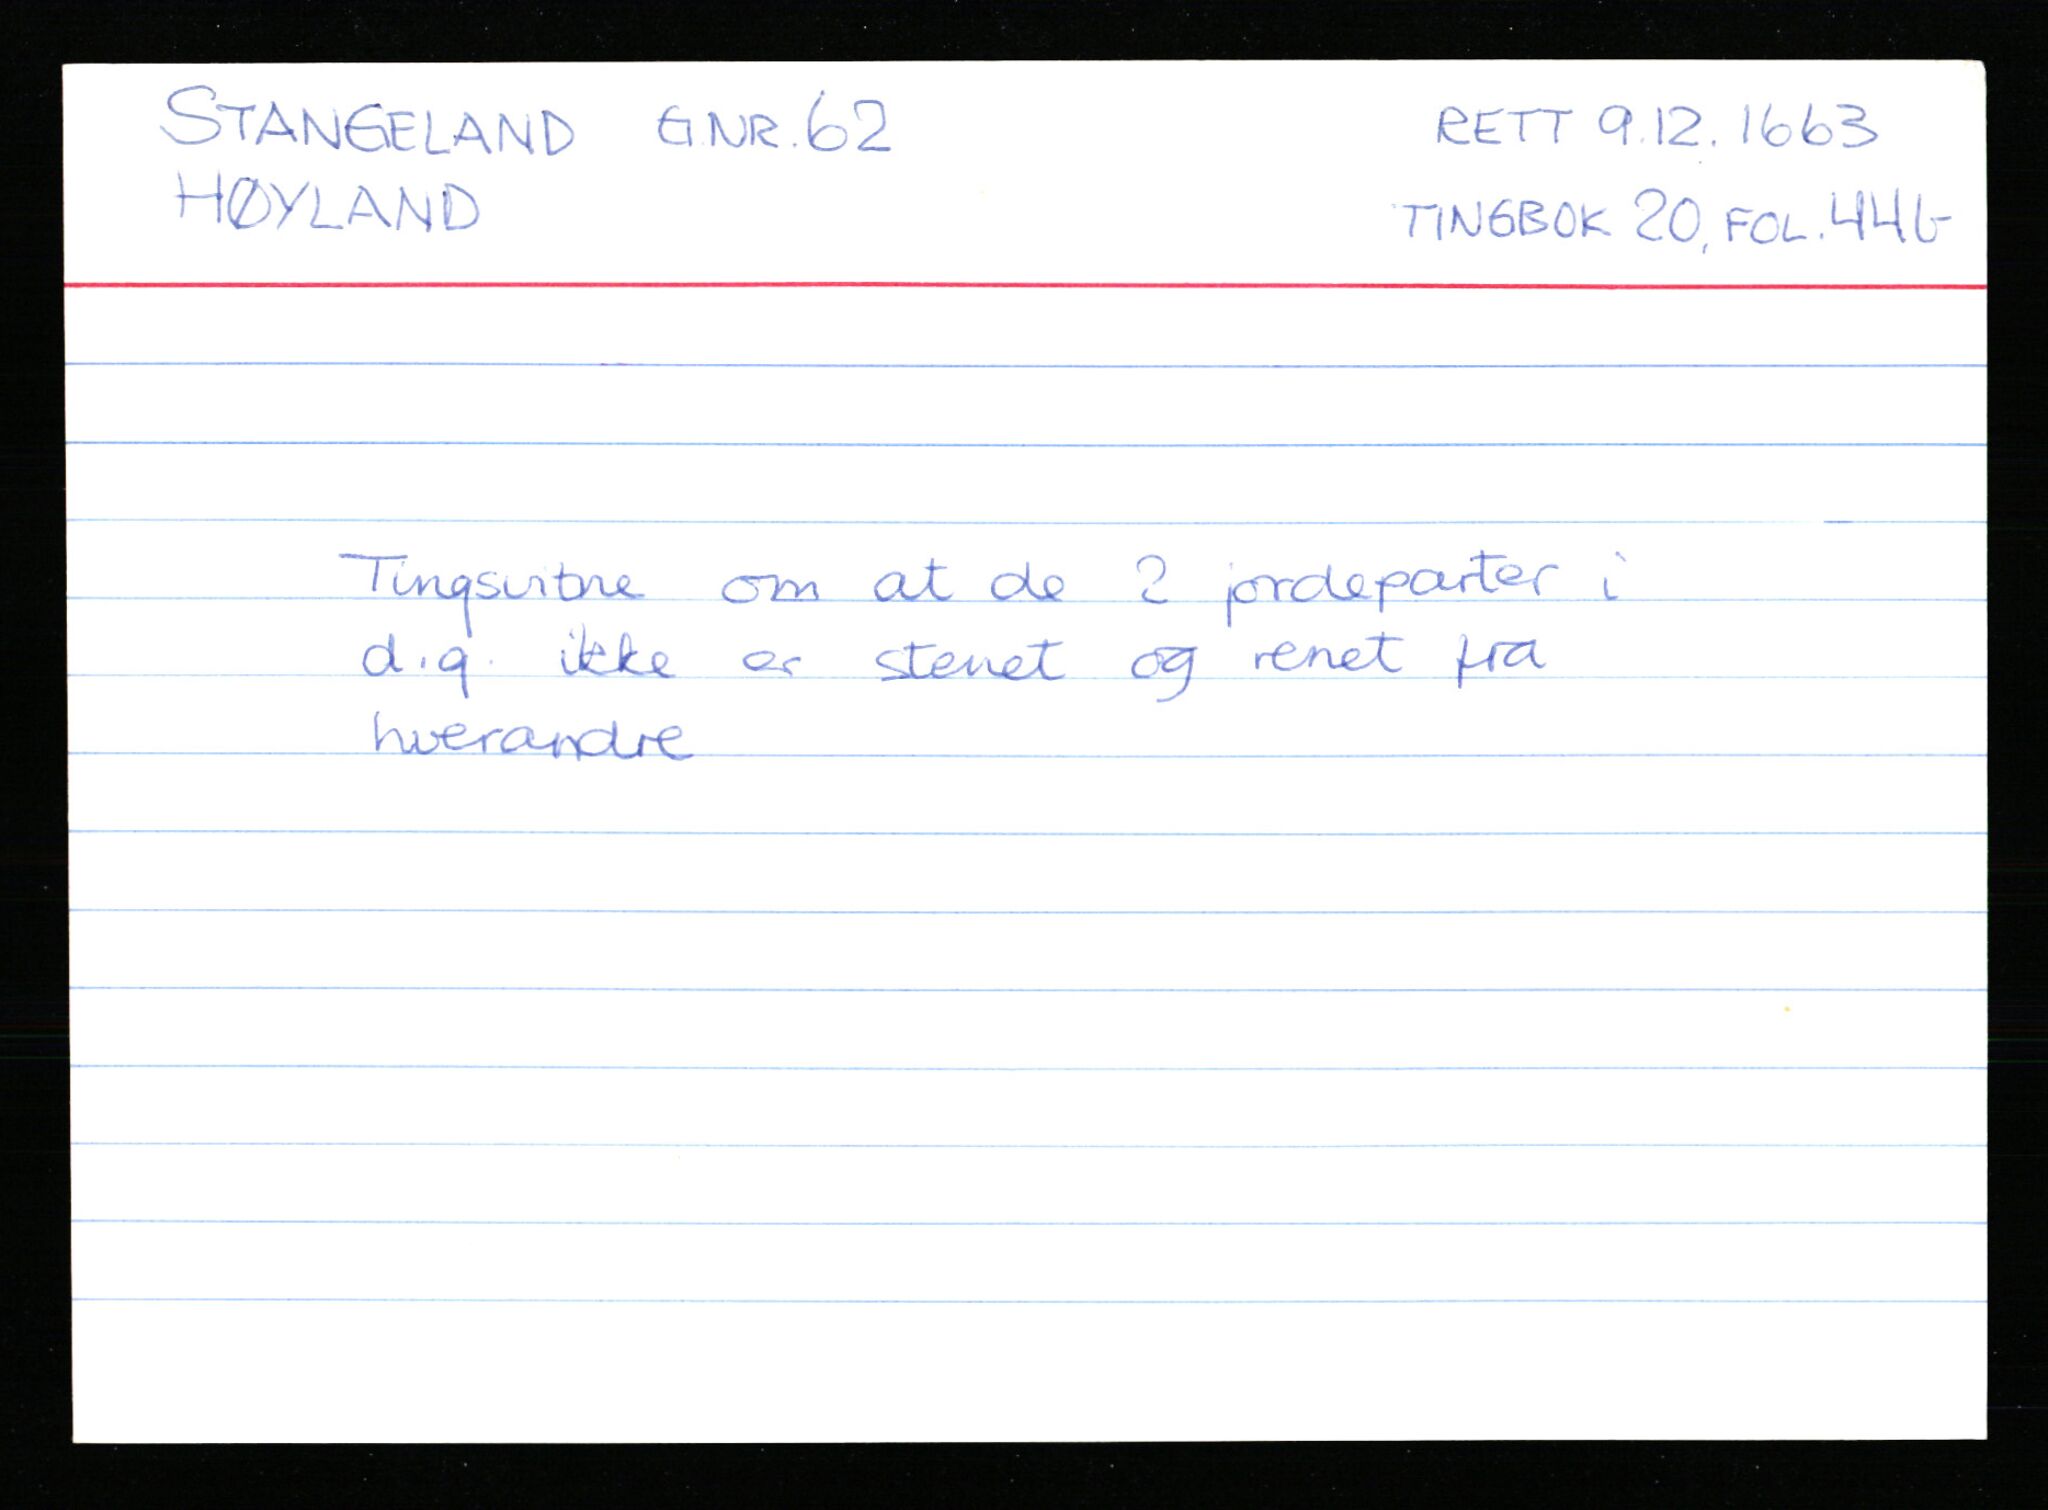 STANGELAND G.NR. 62
HØYLAND
RETT 9.12.1663
TINGBOK 20, FOL. 44b
Tingsvitne om at de 2 jordeparter i
d.g. ikke er stenet og renet fra
hverandre